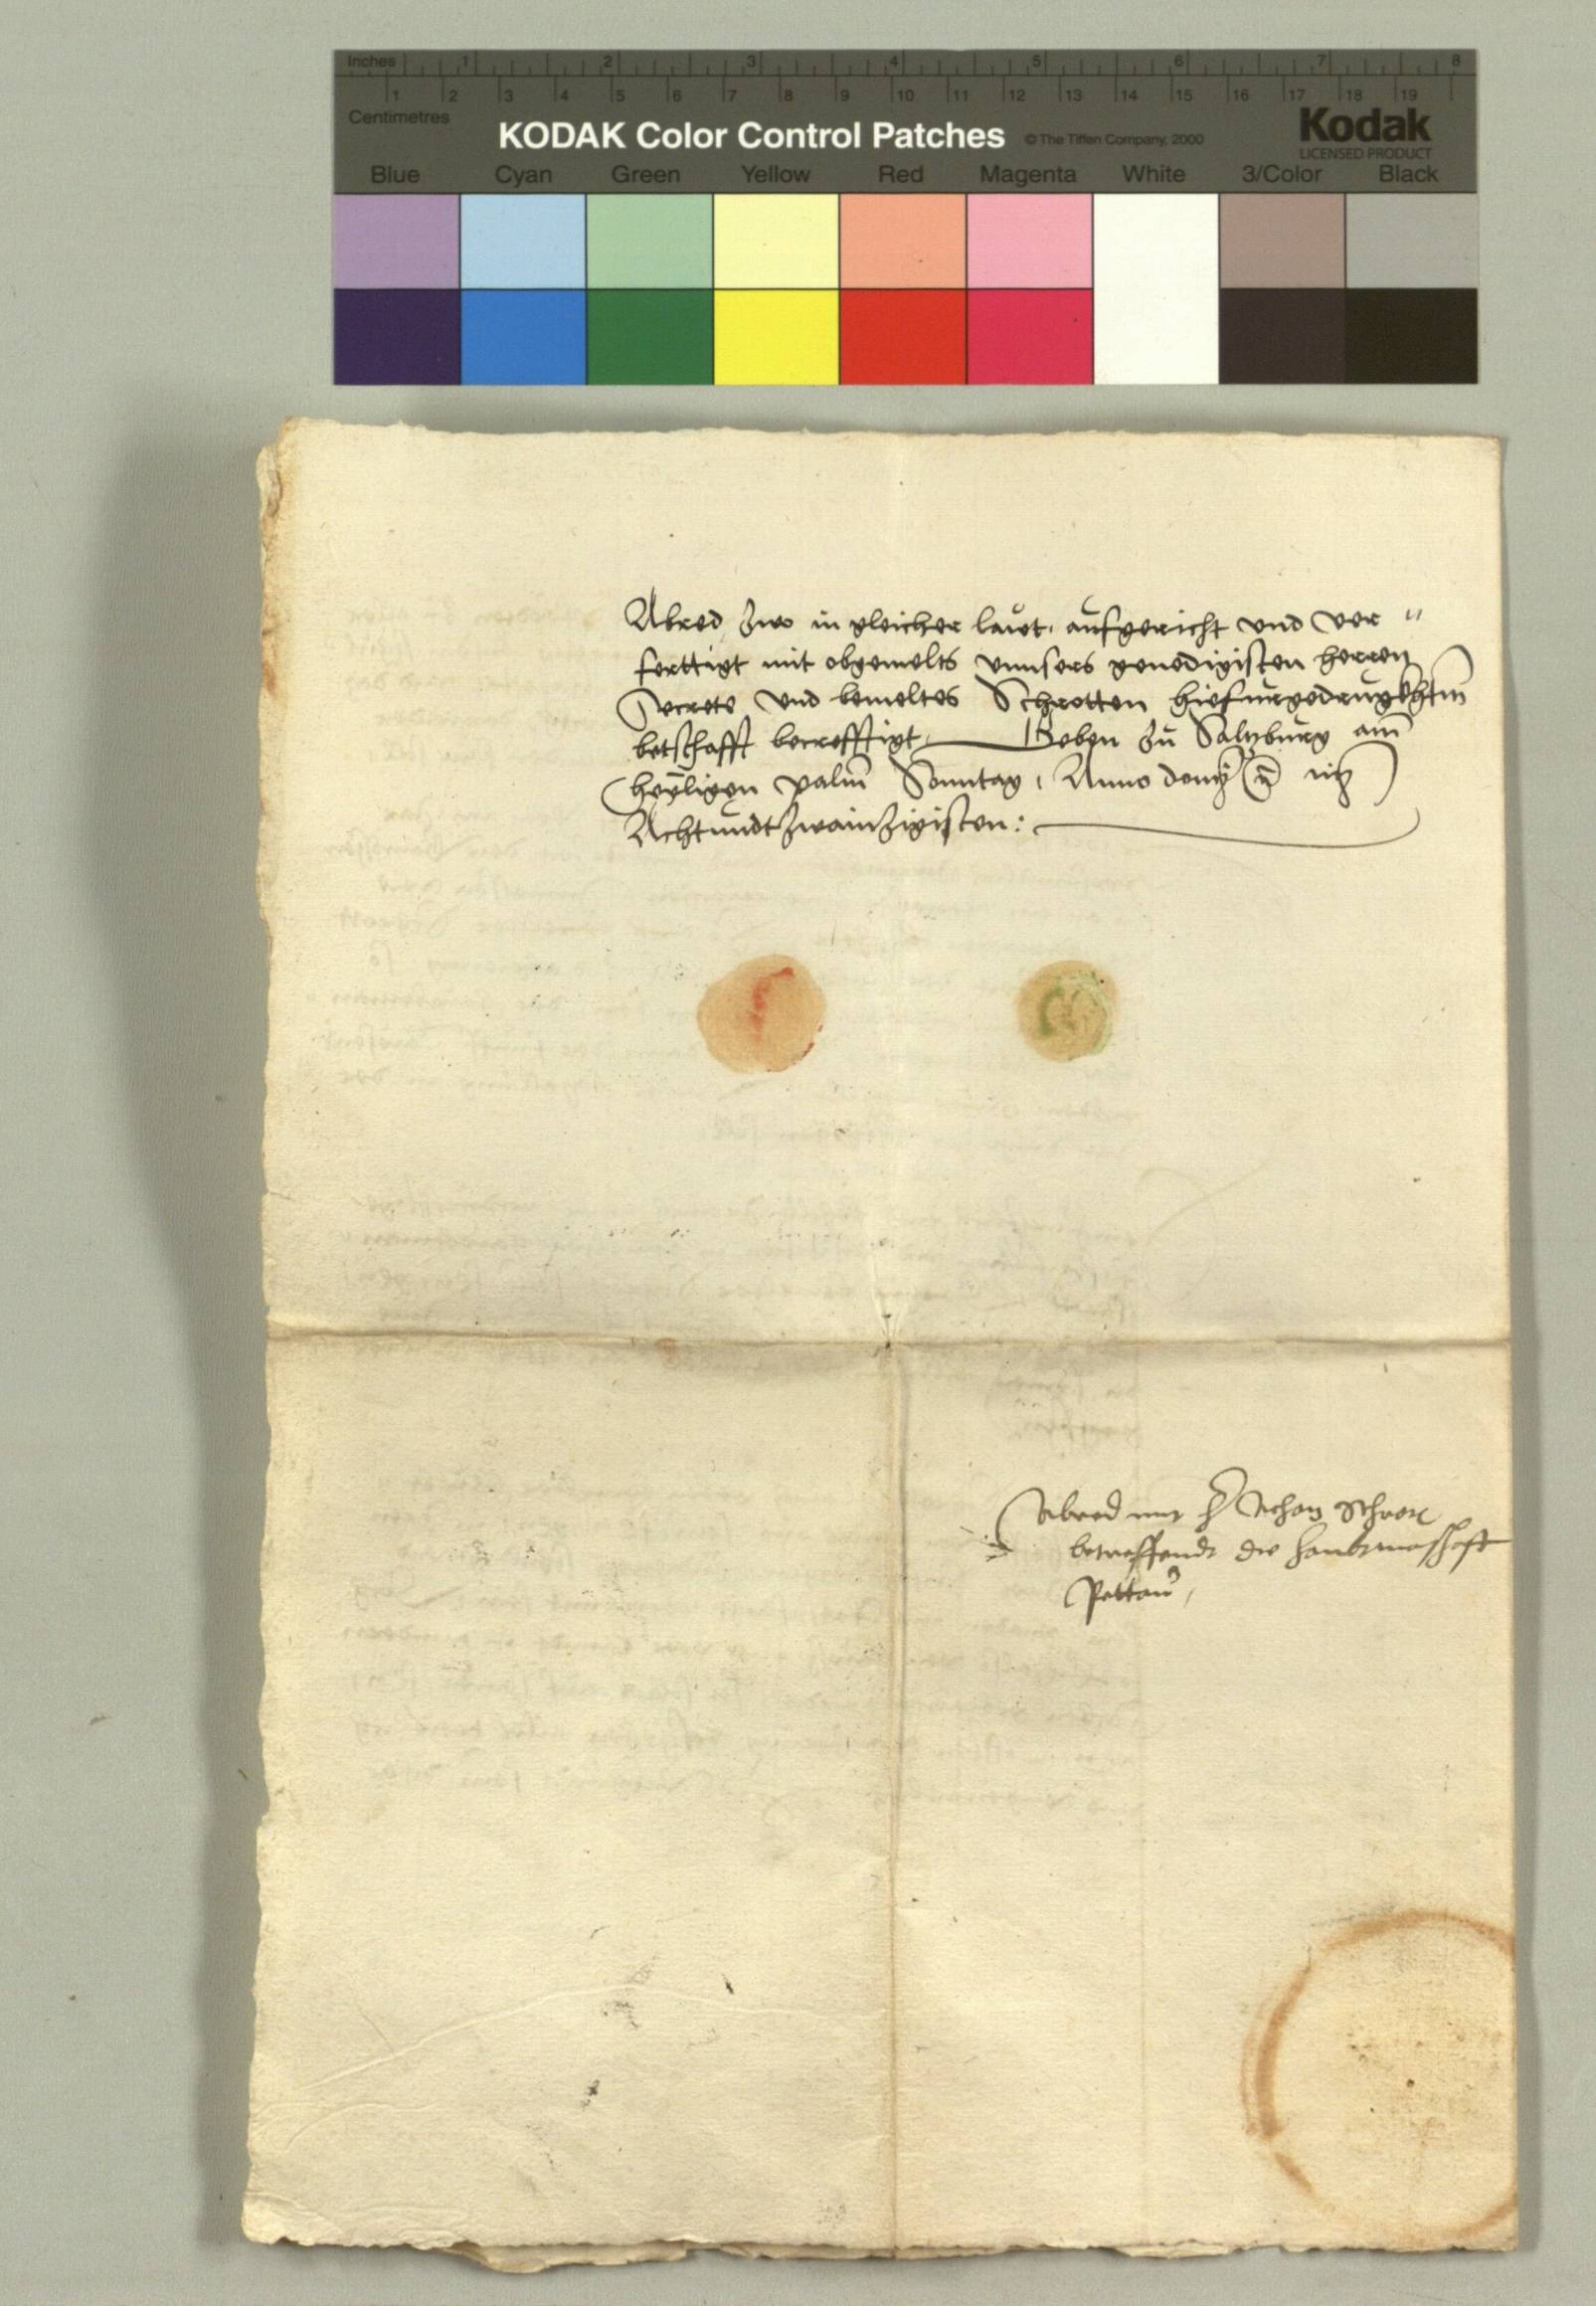 Inches 1 2 3 4 5 6 7 8
1 2 3 4 5 6 7 8 9 10 11 12 13 14 15 16 17 18 19
Centimetres
KODAK Color Control Patches © The Tiffen Company, 2000 Kodak
LICENSED PRODUCT
Blue Cyan Green Yellow Red Magenta White 3/Color Black
Abred zwo in gleicher laut aufgericht vnd ver
ferttigt mit obgemelts vnnsers genedigisten herren
Secrete vnd bemeltes Schrotten hiefurgedrugkhtm
betschafft becrefftigt Geben zu Saltzburg am
heyligen palm Sonntag Anno domj
Achtundtzwainzigisten:
Abred mit Achatz Schrott
betreffendt die haubtmaschafft
Pettau